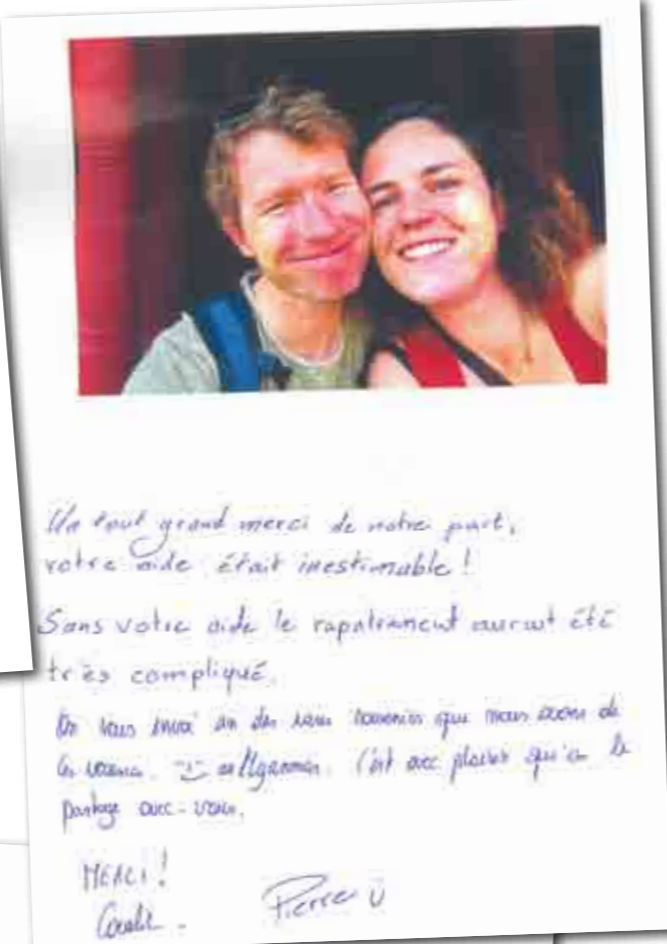 Un tout grand merci de notre part,
votre aide était inestimable !
Sans votre aide le rapatriement aurait été
très compliqué.
On vous envoi un des rares souvenirs que nous avons de
ces vacances. C'est avec plaisir qu'on le
partage avec-vous.
MERCI !
Pierre